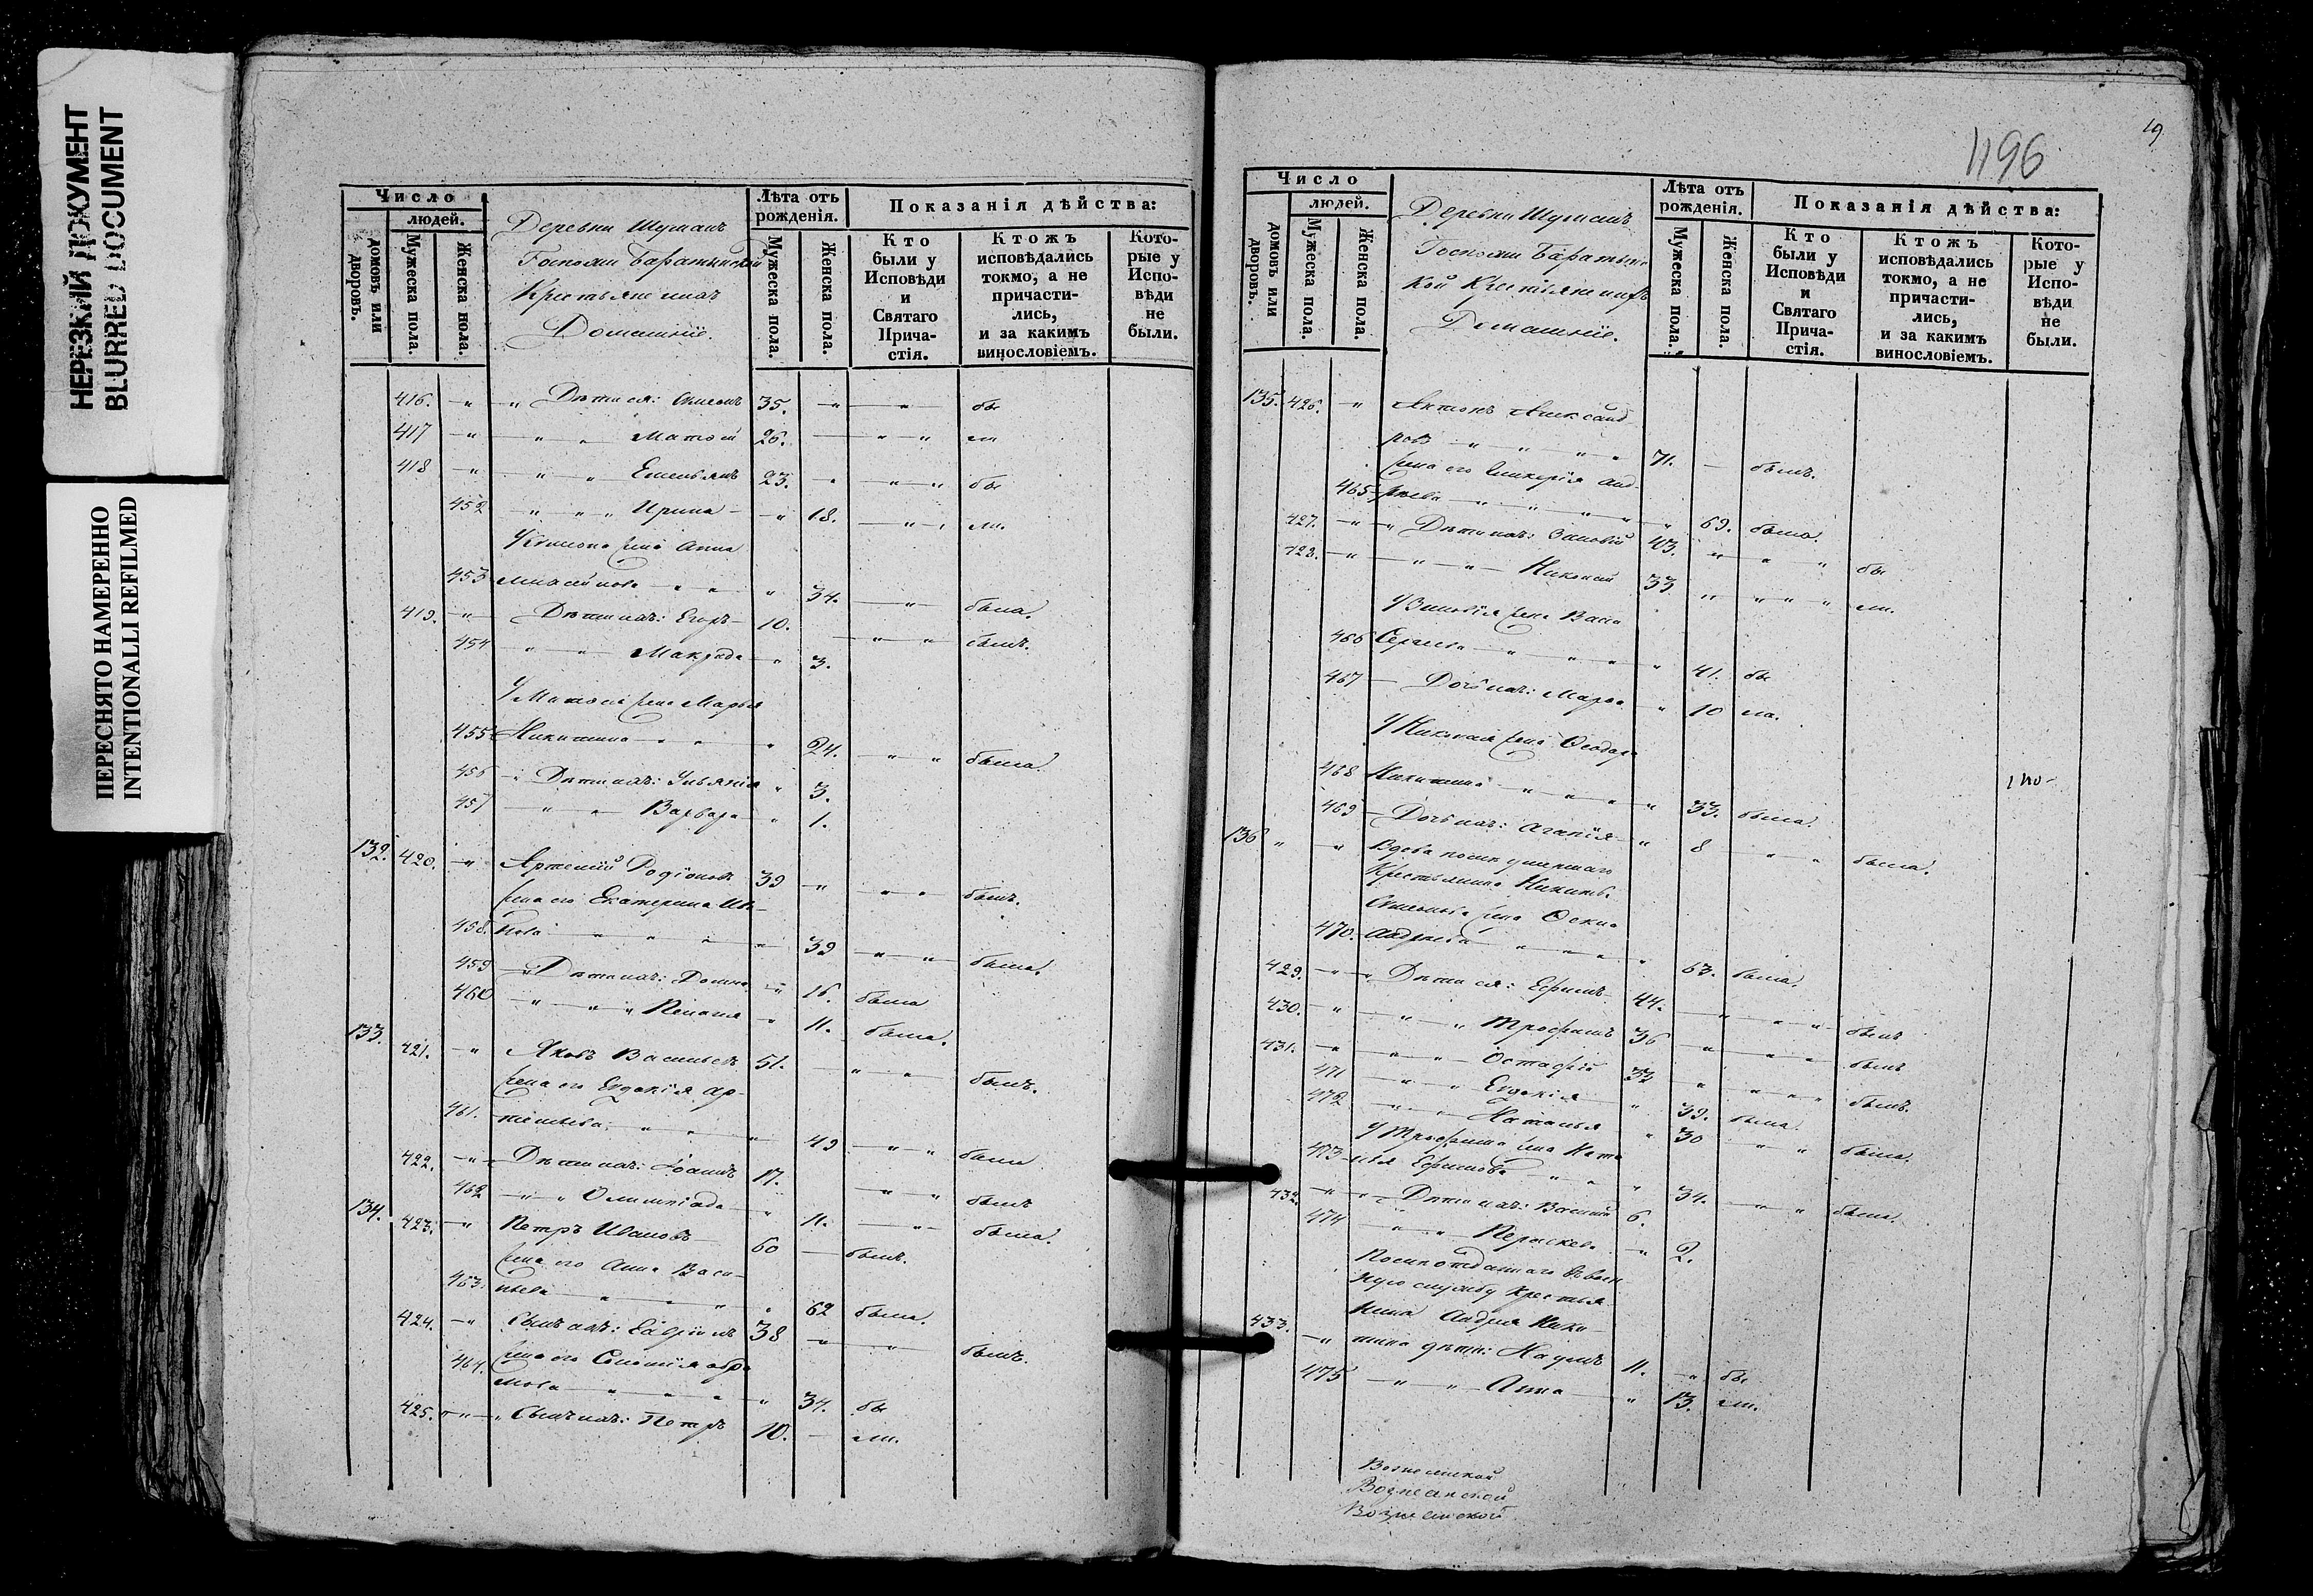 НЕРЕЗКИЙ ДОКУМЕНТ
BLURRED DOCUMENT
ПЕРЕСНЯТО НАМЕРЕННО
INTENTIONALLI REFILMED
Число
людей.
домовъ или дворовъ.
Мужеска пола.
Женска пола.
Деревни Шушанъ
Госпожи Баратынской
Крестьяне ихъ
Домашніе.
Лѣта отъ рожденія.
Мужеска пола.
Женска пола.
Показанія дѣйства:
Кто были у Исповѣди и Святаго Прича-стія.
Ктожъ исповѣдались токмо, а не причасти-лись, и за какимъ винословіемъ.
Кото-рые у Испо-вѣди не были.
416. " " Дѣти ея: 35. " " бы
417 " " " Матвѣй 26. " " ли
418 " " " Емельянъ 23. " " " бы
452 " " " Ирина " 18. " " ли.
жена Анна
453 " " " 34. " была.
419. " Дѣти ихъ: Егоръ 10. " " былъ.
454 " " Макрида " 3.
У Матвѣя жена Марья
455 Никитина " " " 24. " " была.
456 " Дѣти ихъ: Ульянія " 3.
457 " " Варвара " 1.
132. 420. " Артемій Родіоновъ 39 " " " былъ.
жена его Екатерина Ива-
458. нова " " " " 39 " " была.
459 " Дѣти ихъ: Домна " 16. была
460 " " " Пелагія " 11. была.
133. 421. " Яковъ Васильевъ 51. " " былъ.
жена его Евдокія Ар-
461. теміева " " " 49 " " была
422. " Дѣти ихъ: Іоаннъ 17. " " былъ
462 " " Олимпіада " 11. " была.
134. 423. " Петръ Ивановъ 60 былъ.
жена его Анна Васи-
463. льева " " " " 62 была.
424. " Сынъ ихъ: Гавріилъ 38 " " былъ.
464. жена его Соломія Абра
мова " " " " 34. бы
425. " " " Сынъ ихъ: Петръ 10. ли.
1196
19
Число
людей.
домовъ или дворовъ.
Мужеска пола.
Женска пола.
Деревни Шушанъ
Госпожи Баратынс-
кой Крестьяне ихъ
Домашніе.
Лѣта отъ рожденія.
Мужеска пола.
Женска пола.
Показанія дѣйства:
Кто были у Исповѣди и Святаго Прича-стія.
Ктожъ исповѣдались токмо, а не причасти-лись, и за какимъ винословіемъ.
Кото-рые у Испо-вѣди не были.
135. 426. " Антонъ Александ
ровъ " " " " 71. былъ.
жена его Анд-
465 рѣева " " " " " 69. была.
427. " " Дѣти ихъ: Зиновій 43. " " " бы
428. " " " Николай 33 " " " " ли.
У Зиновія жена Васса
466 Сергѣева " " " " " 41. бы
467 Дочь ихъ: Марѳа " 10 ла.
У Николая жена Ѳеодора
468 Никитина " " " " " 33. была.
469 Дочь ихъ: Агапія " 8 " " была.
136 " " Вдова послѣ умершаго
Крестьянина Никиты
жена
470. Андреева " " " " " 63. была.
429. " " Дѣти ея: Ефимъ 44. " " " былъ
430. " " " Трофимъ 36 " " " былъ
431. " " " Остафій 32 " " " " былъ.
471 " " Евдокія " 39. была.
472 " " Наталья " 30 " " была.
У Трофима жена Ната
473 лья Ефимова " " " 34. " " была.
432. " " Дѣти ихъ: Василій 6.
474 " " Параскева " 2.
Послѣ отданнаго въ воен
ную службу Крестья
нина Андрея Ники-
433. " тина дѣти: Наумъ 11. " бы
475 " " Анна " 13. ли.
Вознесенской
Вознесенской
Вознесенской